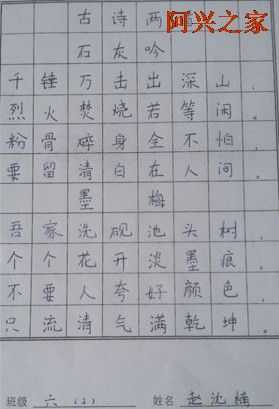 阿兴之家
古诗两首
石灰吟
千锤万击出深山，
烈火焚烧若等闲。
粉骨碎身全不怕，
要留清白在人间。
墨梅
吾家洗砚池头树，
个个花开淡墨痕。
不要人夸好颜色，
只流清气满乾坤。
班级 六（2） 姓名 赵沈楠